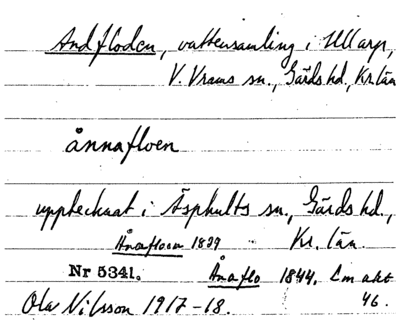 Andfloden, vattensamling i Ullarp,
V. Vrams sn., Gärds hd, Kr. län
ånnafloen
upptecknat i Äsphults sn., Gärds hd.,
Ånafloen 1839 Kr. län.
Nr 5341. Ånaflo 1844. Lm akt
Ola Nilsson 1917-18. 46.